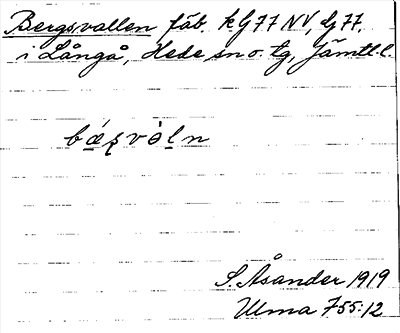 Bergsvallen fäb. kG77NV, Lg 77,
i Långå, Hede sn o. tg, Jämtl. l.
bǽʂvàln
S. Åsander 1919
Ulma 755:12